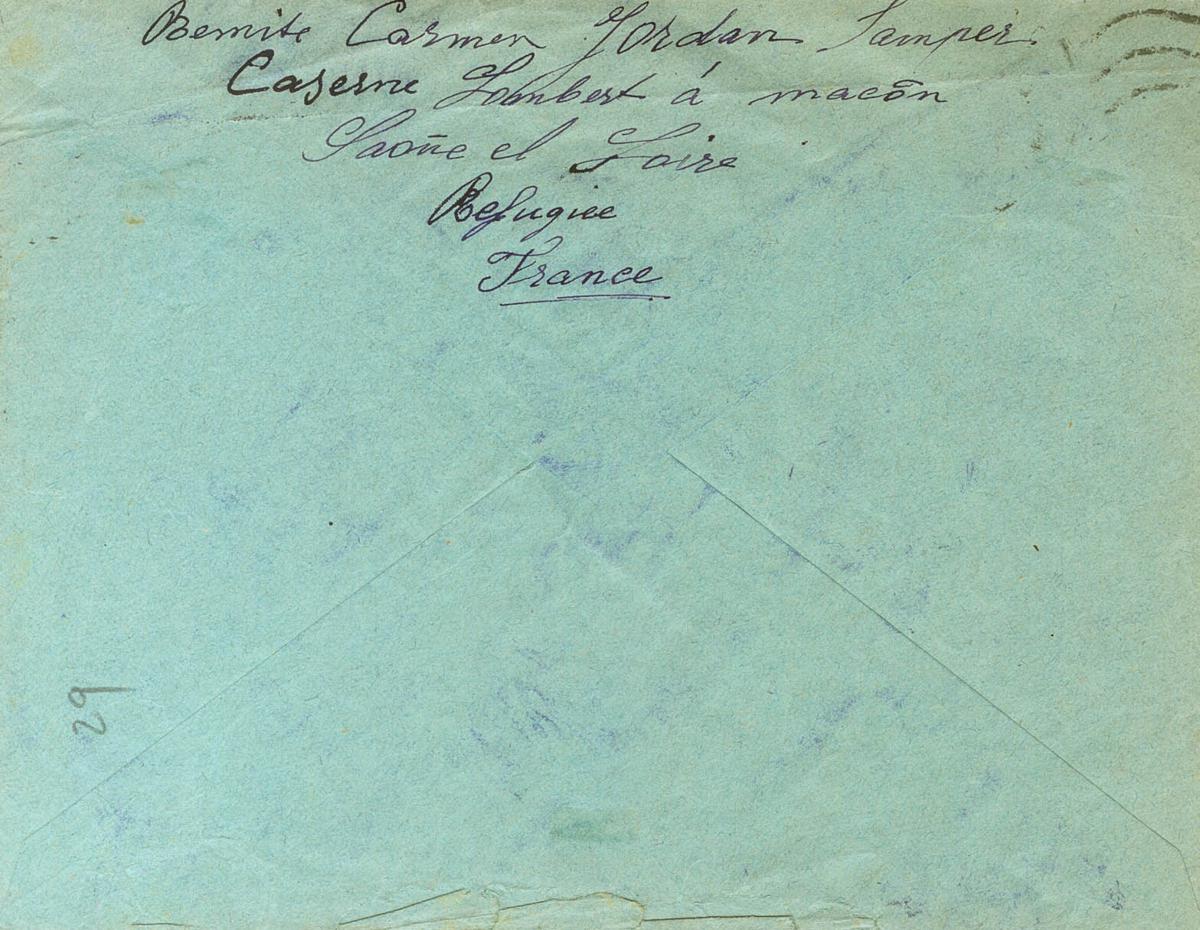 Remite Carmen Jordan Samper.
Caserne Lombert á macôn
Saoñe el Loire
Refugiee
France
29